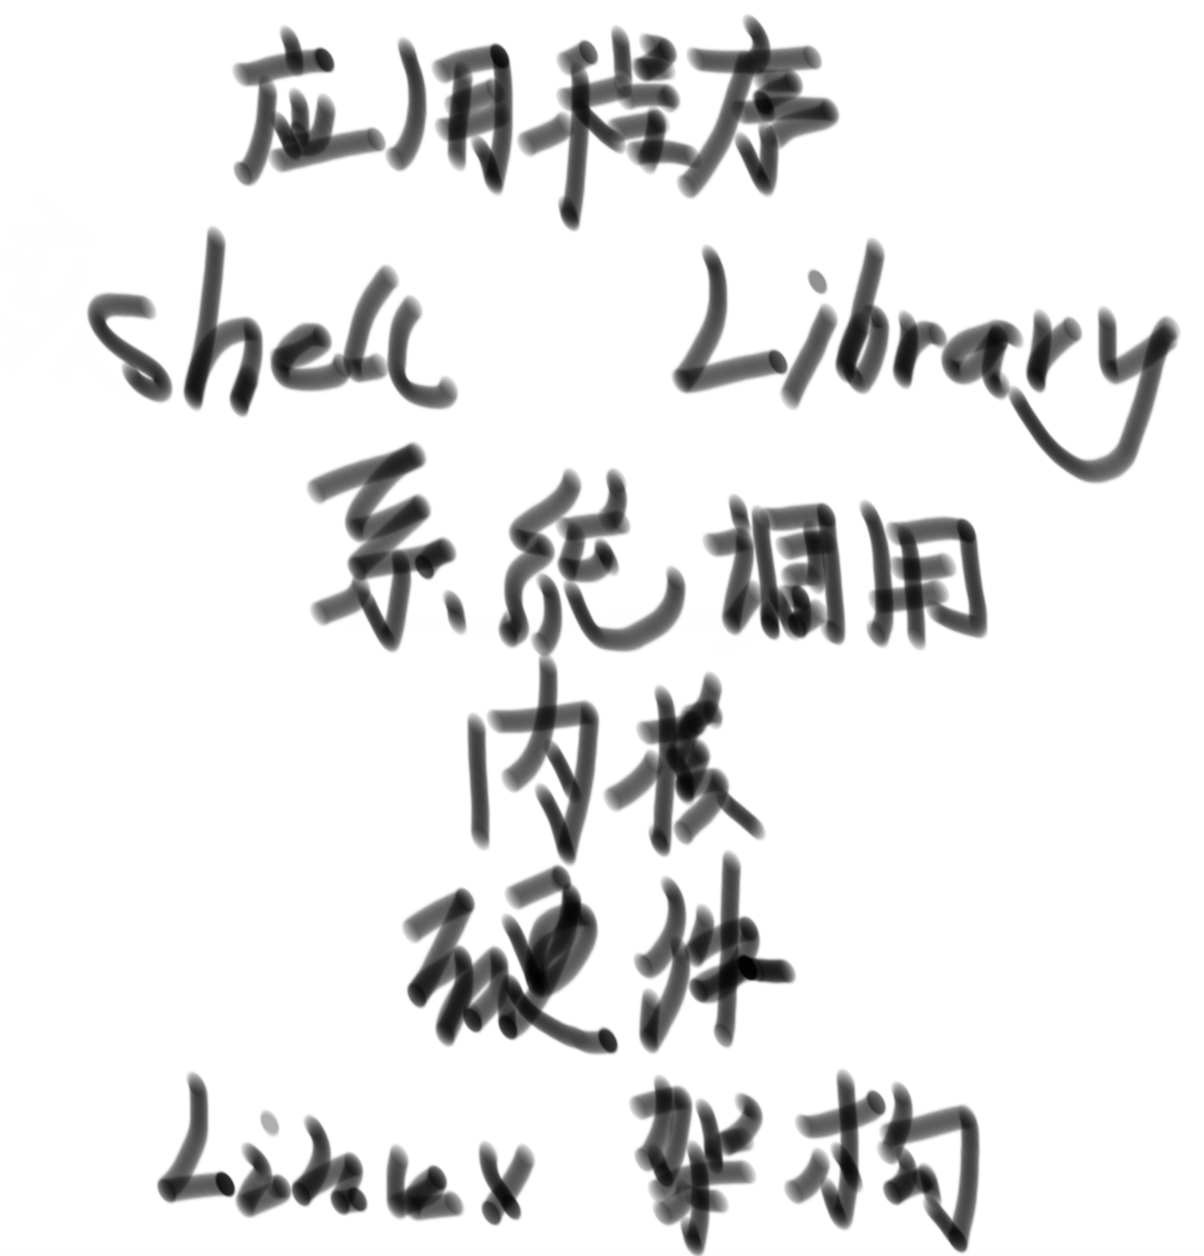 应用程序
shell Library
系统调用
内核
硬件
Linux 架构